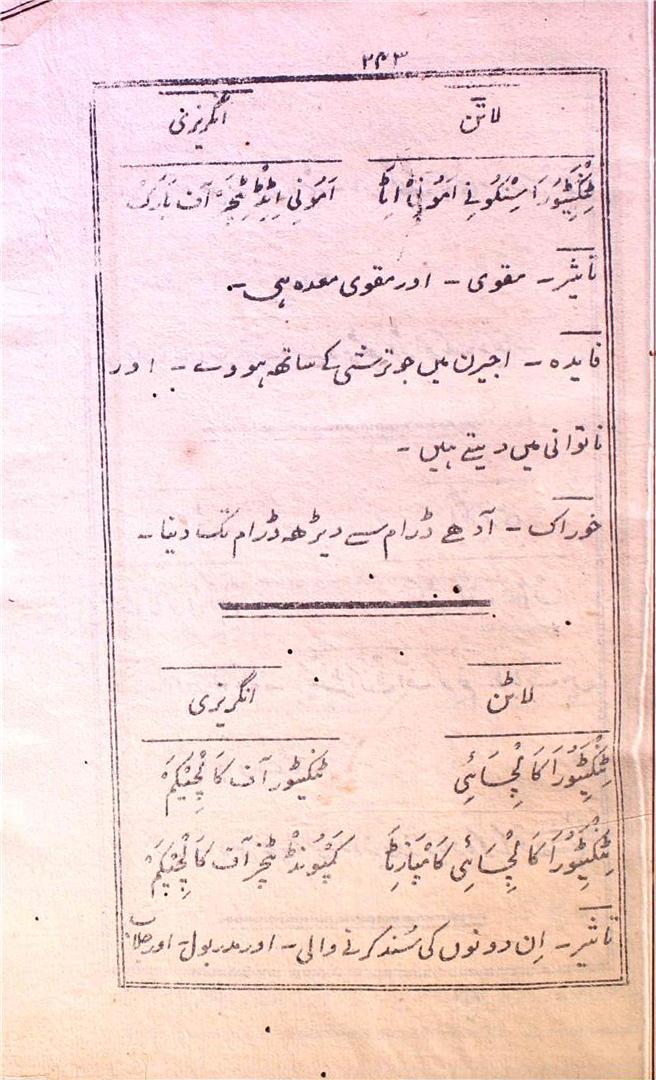 ۲۴۳
لاٹن انگریزی
ٹِنْکِٹیُوْرَا سِنْکُونِے اَمُونِیْ اٹَا اَمَونِی اِٹِڈْ ٹِنْچَرْ آف بَارک
تاثیر۔ مقوی۔ اور مقوی معدہ ہی۔
فایدہ۔ اجیرن میں جو ترشی کے ساتھ ہووے۔ اور
ناتوانی میں دیتے ہیں۔
خوراک۔ آدھے ڈرام سے دیڑھ ڈرام تک دینا۔
لاٹن انگریزی
ٹِنْکِٹیُوْرَا کَالْچِسَائِی ٹنکٹیور آف کَالْچِیْکَمْ
ٹِنْکِٹیُوْرَا کَالْچِسَائِی کَامْپَازِٹَا کَمْپُونْڈْ ٹِنْچَرْ آف کَالْچِیْکَمْ
تاثیر۔ اِن دونوں کی سُند کرنے والی۔ اور مدر بول۔ اور جلاب